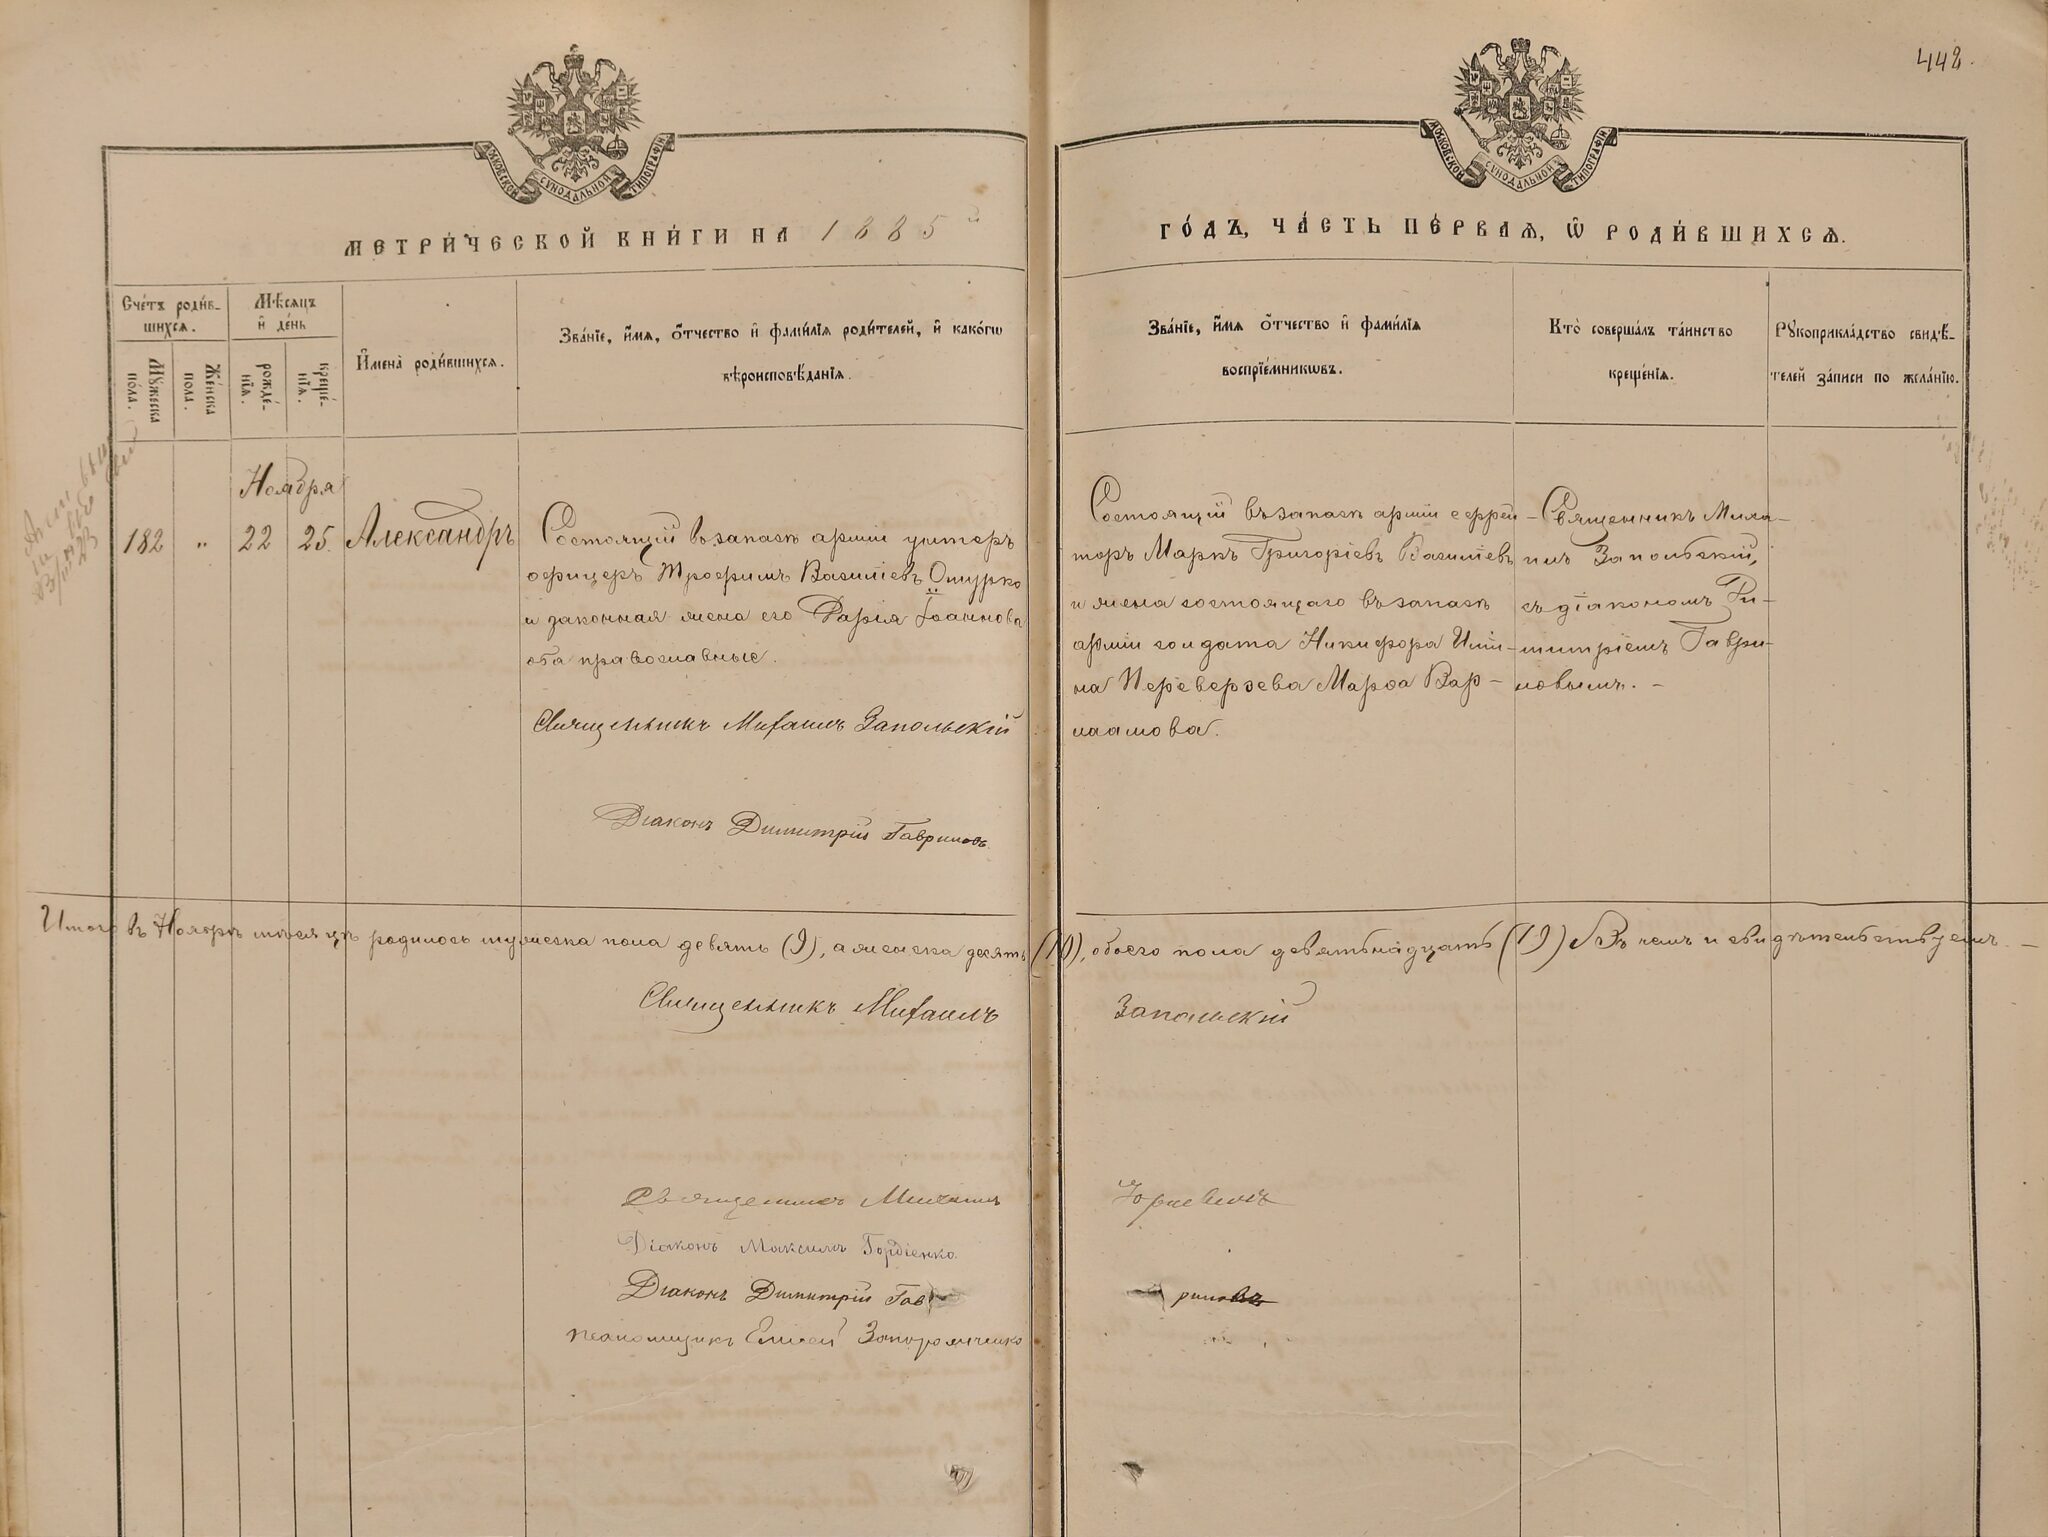 448.
МОСКОВСКОЙ СѴНОДАЛЬНОЙ ТИПОГРАФІИ
МОСКОВСКОЙ СѴНОДАЛЬНОЙ ТИПОГРАФІИ
МЕТРИ́ЧЕСКОЙ КНИ́ГИ НА 1885 й
ГО́ДЪ, ЧА́СТЬ ПЕ́РВАѦ, Ѡ҆ РОДИ́ВШИХСѦ.
Сче́тъ роди́в-
шихсѧ.
Мꙋ́жеска
по́ла.
Же́нска
пола.
Мѣ́сѧцъ
и҆ де́нь
рожде́-
нїѧ.
креще́-
нїѧ.
И҆мена̀ роди́вшихсѧ.
Зва́нїе, и҆́мѧ, ѻ҆́тчество и҆ фами́лїѧ роди́телей, и҆ како́гѡ
вѣроисповѣ́данїѧ.
Зва́нїе, и҆́мѧ ѻ҆́тчество и҆ фами́лїѧ
воспрїе́мникѡвъ.
Кто̀ соверша́лъ та́инство
креще́нїѧ.
Рꙋкоприкла́дство свидѣ́-
телей за́писи по жела́нїю.
Ноября
182 „ 22 25. Александръ
Состоящій въ запасѣ арміи унтеръ
офицеръ Трофимъ Василіевъ Отурко
и законная жена его Дарія Іоаннова
оба православные.
Священникъ Михаилъ Запольскій
Діаконъ Димитрій Гавриловъ
Состоящій въ запасѣ арміи ефрей-
торъ Маркъ Григоріевъ Василіевъ
и жена состоящаго въ запасѣ
арміи солдата Никифора Или-
на Переверзева Марѳа Вар-
лаамова.
Священникъ Миха-
илъ Запольскій,
съ діакономъ Ди-
митріемъ Гаври-
ловымъ. -
Итого въ Ноябрѣ мѣсяцѣ родилось мужеска пола девять (9), а женска десять (10), обоего пола девятьнадцать (19) Въ чемъ и свидѣтельствуемъ. -
Священникъ Михаилъ Запольскій
Священникъ Михаилъ Юркевичъ
Діаконъ Максимъ Гордіенко.
Діаконъ Димитрій Гавриловъ
Псаломщикъ Елисей Запорожченко